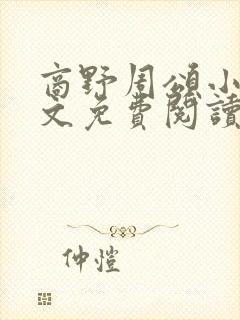 商野周頌小
文免費閱讀
仲愷